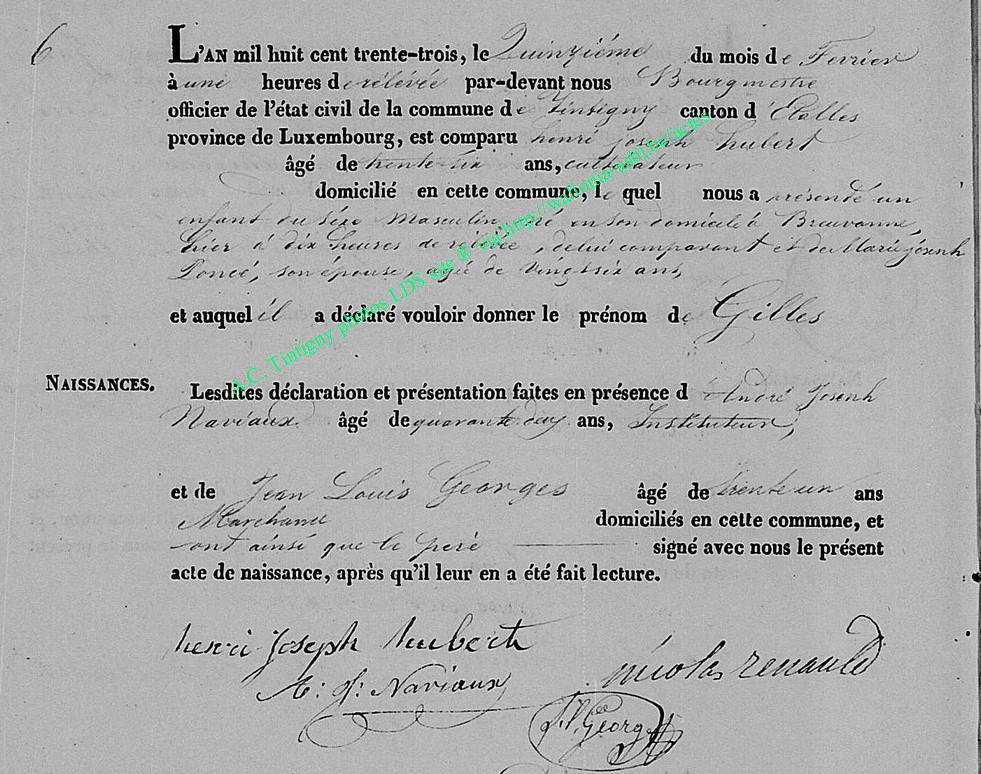 6
L'AN mil huit cent trente-trois, le Quinziéme du mois de Fevrier
à une heures de rélévée par-devant nous Bourgmestre
officier de l'état civil de la commune de Tintigny canton d'Etalles
province de Luxembourg, est comparu henri joseph hubert
âgé de trente six ans, cultivateur
domicilié en cette commune, le quel nous a présendé un
enfant du séxe Masculin, né en son domicile à Breuvanne,
hier à dix heures de relévée, de lui comparant et de Marie joseph
Poncé, son épouse, agée de vingt six ans,
et auquel il a déclaré vouloir donner le prénom de Gilles
NAISSANCES.
Lesdites déclaration et présentation faites en présence d'André Joseph
Naviaux âgé de quarante deux ans, Instituteur,
et de Jean Louis Georges âgé de trente un ans
Marchand domiciliés en cette commune, et
ont ainsi que le peré signé avec nous le présent
acte de naissance, après qu'il leur en a été fait lecture.
henri Joseph hubert
nicolas renauld
A: J: Naviaux
J. L. Georges
A.C. Tintigny photos LDS site ® via http://wallonia-asbl.be/actes